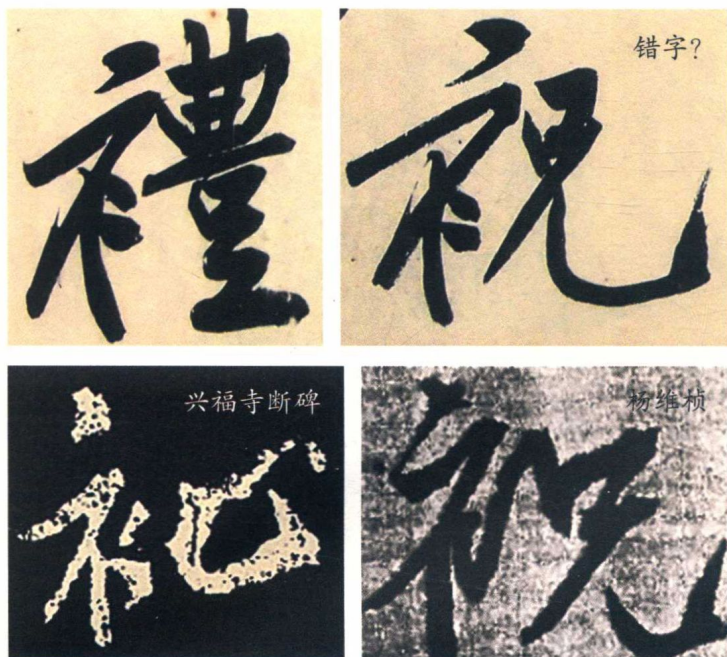 禮
错字?
祝
兴福寺断碑
杨维桢
祝